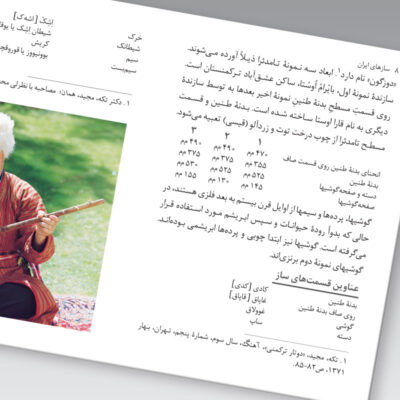 ۸ سازهای ایران
«دوزگون» نام دارد.۱ ابعاد سه نمونهٔ تامدئرا ذیلاً آورده می‌شوند.
سازندهٔ نمونهٔ اول، بایْرام اُوستا، ساکن عشق‌آباد ترکمنستان است.
روی قسمت مسطح بدنهٔ طنین نمونهٔ اخیر بعدها به توسط سازندهٔ
دیگری به نام قارا اوستا ساخته شده است. بدنهٔ طنین و قسمت
مسطح تامدئرا از چوب درخت توت و زردآلو (قیسی) تعبیه می‌شود.
۱ ۲ ۳
۴۷۰ مم ۴۹۰ مم ۴۹۰ مم
انحنای بدنهٔ طنین روی قسمت صاف ۳۵۵ مم ۳۷۵ مم ۳۷۵ مم
بدنهٔ طنین ۵۲۵ مم ۵۲۵ مم ۵۳۰ مم
دسته و صفحه‌گوشیها ۱۴۵ مم ۱۳۰ مم ۱۵۵ مم
صفحه‌گوشیها
گوشیها، پرده‌ها و سیمها از اوایل قرن بیستم به بعد فلزی هستند، در
حالی که بدواً رودهٔ حیوانات و سپس ابریشم مورد استفاده قرار
می‌گرفته است. گوشیها نیز ابتدا چوبی و پرده‌ها ابریشمی بوده‌اند.
گوشیهای نمونهٔ دوم برنزی‌اند.
عناوین قسمت‌های ساز
بدنهٔ طنین کادی [کدی]
روی صاف بدنهٔ طنین قاپاق [قاپاق]
گوشی قوولاق
دسته ساپ
۱. تکه، مجید، «دوتار ترکمنی»، آهنگ، سال سوم، شمارهٔ پنجم، تهران، بهار
۱۳۷۱، ص۸۲-۸۵.
خرک اِشِک [اشه‌ک]
شیطانک شیطان اِشِک یا
سیم کریش
سیم‌بست یوپنیووز یا
۱. دکتر تکه، مجید، همان؛ مصاحبه با نظرلی